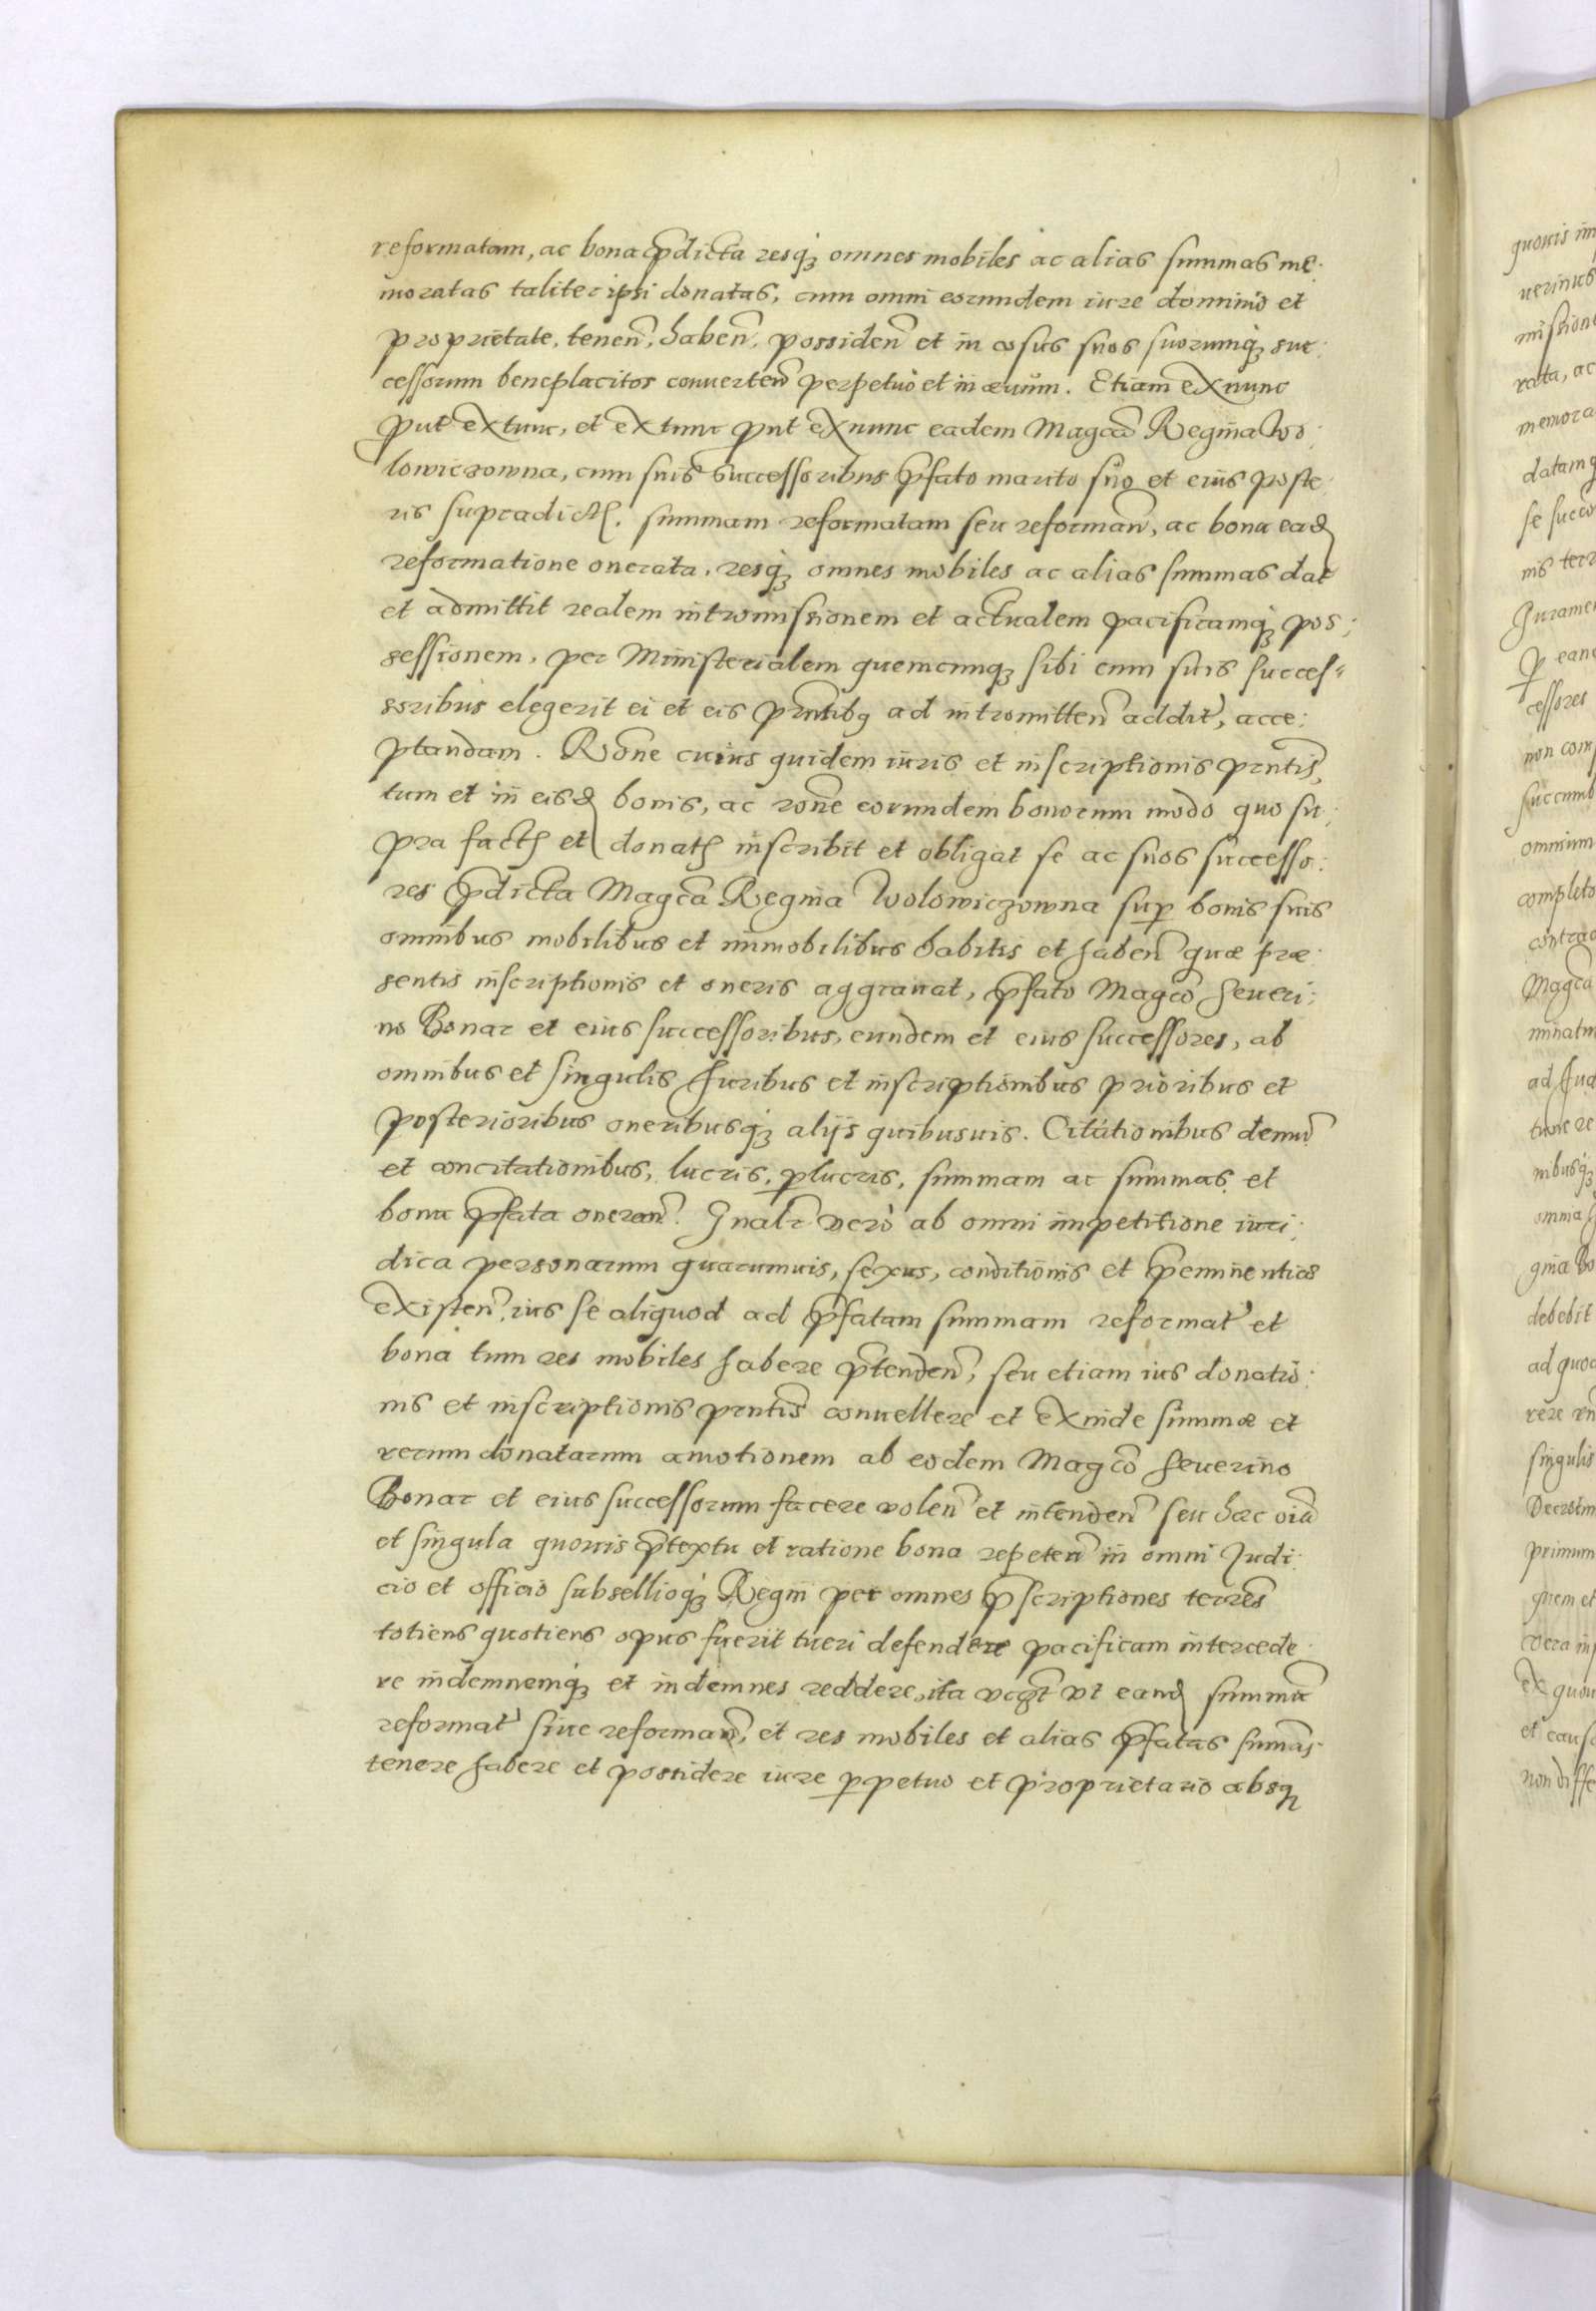 reformatam, ac bona p̃dicta resq́ꝫ omnes mobiles ac alias summas me:
moratas taliter ipsi donatas, cum omni eorundem iure dominio et
proprietate, teneñ, habeñ, possideñ et in cosus suos suorumq́ꝫ suc:
cessorum beneplacitos conuerteñ perpetuò et in æuum. Etiam ex nunc
put̃ ex tunc, et ex tunc put̃ ex nunc eadem Magcã Regina Wo:
lowiczowna, cum suis successoribus p̃fato marito suo et eius poste:
ris supradictꝭ. summam reformatam seu reformañ, ac bona eađ
reformatione onerata, resq́ꝫ omnes mobiles ac alias summas dat
et admittit realem intromissionem et actualem pacificamq́ꝫ pos:
sessionem, per Ministerialem quemcunqꝫ sibi cum suis succes=
soribus elegerit ei et eis prñtibꝫ ad intromitteñ addit̃, acce:
ptandam. Rõne cuius quidem iuris et inscriptionis prñtis,
tum et in eisđ bonis, ac rõne eorundem bonorum modo quo su:
pra factꝭ et donatꝭ inscribit et obligat se ac suos successo:
res p̃dicta Magcã Regina Wolowiczowna sup̱ bonis suis
omnibus mobilibus et immobilibus habitis et habeñ quæ præ:
sentis inscriptionis et oneris aggrauat, p̃fato Magcõ Seueri:
no Bonar et eius successoribus, eundem et eius successores, ab
omnibus et singulis Iuribus et inscriptionibus prioribus et
posterioribus oneribusq́ꝫ alijs quibusuis. Citationibus demũ
et concitationibus, lucris, ꝑlucris, summam ac summas et
bona p̃fata onerañ. Inalr̃ verò ab omni impetitione iuri:
dica personarum quarumuis, sexus, conditionis et p̃eminentiæ
existeñ, ius se aliquod ad p̃fatam summam reformat̃ et
bona tum res mobiles habere p̃tendeñ, seu etiam ius donatio:
nis et inscriptionis prñtis conuellere et exinde summæ et
rerum donatarum amotionem ab eodem Magcõ Seuerino
Bonar et eius successorum facere voleñ et intendeñ seu hæc oiã
et singula quouis p̃textu et ratione bona repeteñ in omni Judi:
cio et officio subsellioq́ꝫ Regni per omnes p̃scriptiones terrẽs
totiens quotiens opus fuerit tueri defendere pacificam intercede:
re indemnemq́ꝫ et indemnes reddere, ita vt eanđ summã
reformat̃ siue reformañ, et res mobiles et alias p̃fatas sum̃as
tenere habere et possidere iure ꝑpetuo et proprietario absqꝫ